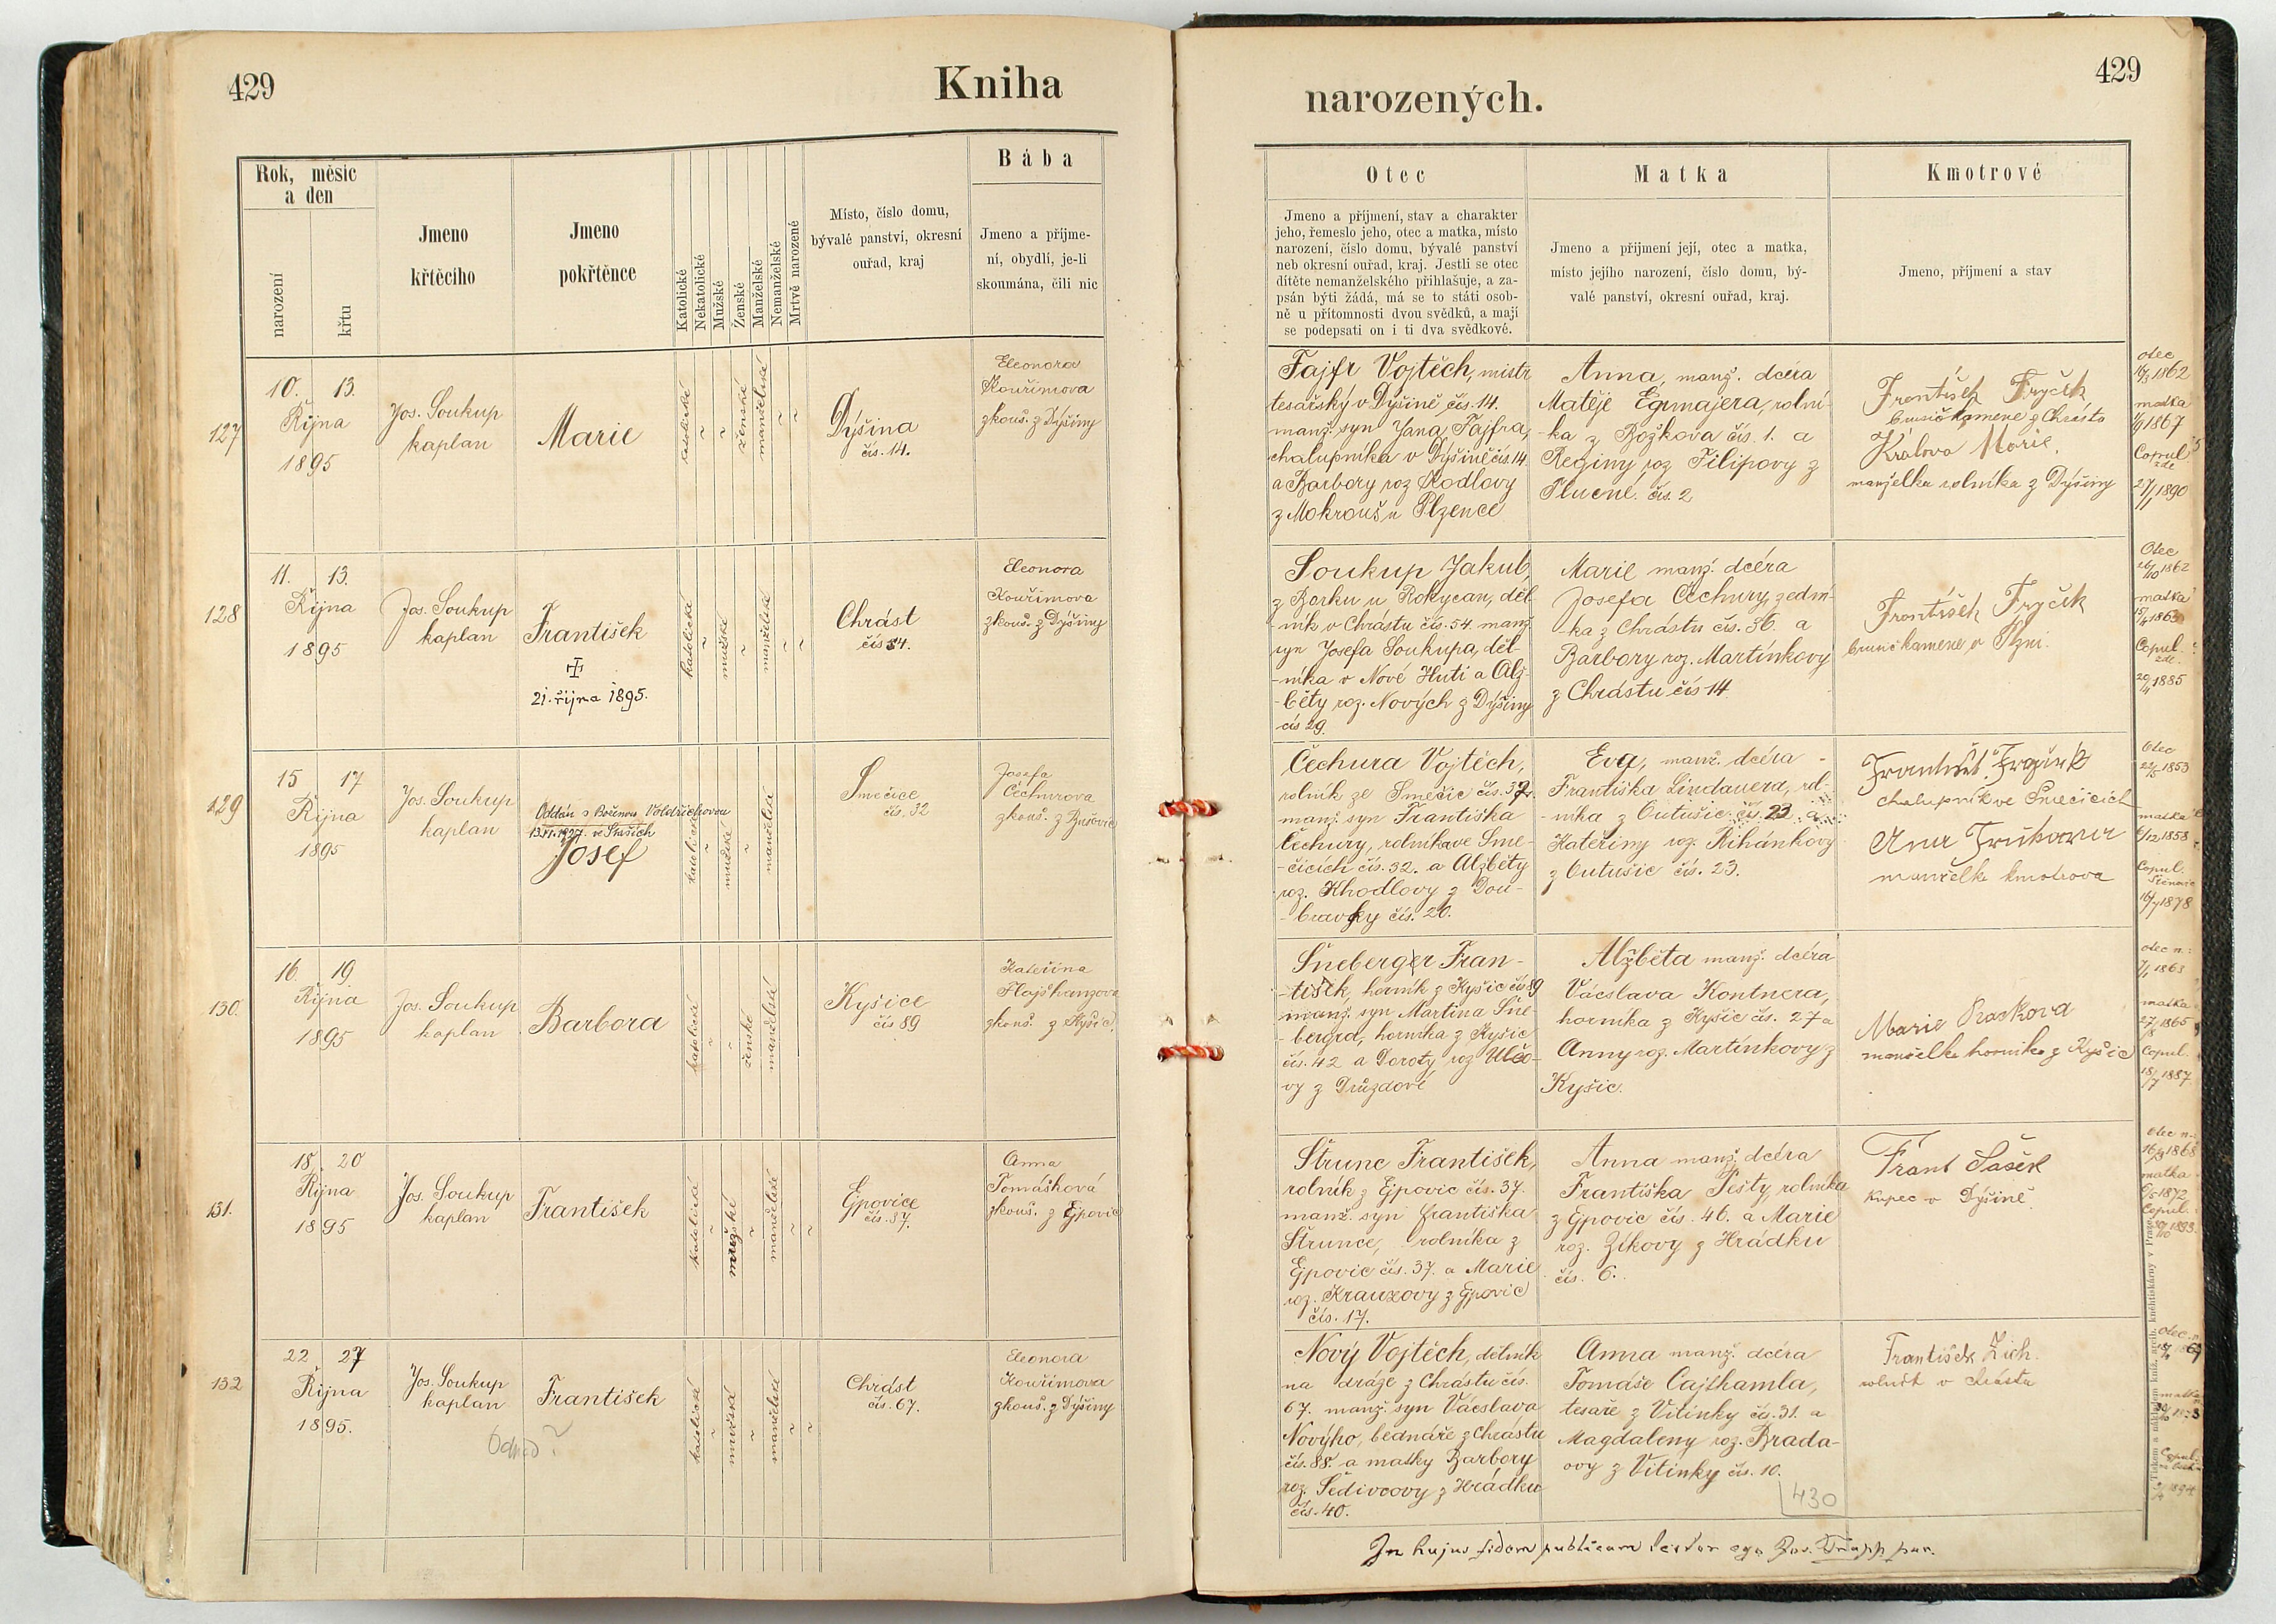 429
Kniha
Rok, měsíc
a den
narození
křtu
Jmeno
křtěcího
Jmeno
pokřtěnce
Katolické
Nekatolické
Mužské
Ženské
Manželské
Nemanželské
Mrtvě narozené
Místo, číslo domu,
bývalé panství, okresní
ouřad, kraj
Bába
Jmeno a příjme-
ní, obydlí, je-li
skoumána, čili nic
127
10. 13.
Října
1895
Jos. Soukup
kaplan
Marie
katolické
ženské
manželské
Dýšina
čís. 14.
Eleonora
Kouřimova
zkouš. z Dýšiny
128
11. 13.
Října
1895
Jos. Soukup
kaplan
František
21. října 1895.
katolické
mužské
manželské
Chrást
čís 54.
Eleonora
Kouřimova
zkouš. z Dýšiny
129
15 17
Října
1895
Jos. Soukup
kaplan
Oddán s Boženou Voldřichovou
13.11.1927. ve Stusích
Josef
katolické
mužské
manželské
Smečice
čís. 32
Josefa
Čechurova
zkouš. z Bušovic
130.
16 19
Října
1895
Jos. Soukup
kaplan
Barbora
katolické
ženské
manželské
Kyšice
čís 89
Kateřina
zkouš. z Kyšic.
131.
18 20
Října
1895
Jos. Soukup
kaplan
František
katolické
mužské
manželské
Ejpovice
čís. 37.
Anna
Tomášková
zkouš. z Ejpovic
132
22 27
Října
1895.
Jos. Soukup
kaplan
František
katolické
mužské
manželské
Chrást
čís. 67.
Eleonora
Kouřimova
zkouš. z Dýšiny
429
narozených.
Otec
Jmeno a příjmení, stav a charakter
jeho, řemeslo jeho, otec a matka, místo
narození, číslo domu, bývalé panství
neb okresní ouřad, kraj. Jestli se otec
dítěte nemanželského přihlašuje, a za-
psán býti žádá, má se to státi osob-
ně u přítomnosti dvou svědků, a mají
se podepsati on i ti dva svědkové.
Matka
Jmeno a příjmení její, otec a matka,
místo jejího narození, číslo domu, bý-
valé panství, okresní ouřad, kraj.
Kmotrové
Jmeno, příjmení a stav
Fajfr Vojtěch, mistr
tesařský v Dýšině čís. 14.
manž. syn Jana Fajfra,
chalupníka v Dýšině čís 14.
a Barbory roz Kodlovy
z Mokrouš u Plzence
Anna, manž. dcéra
Matěje Egrmajera, rolní-
-ka z Božkova čís. 1. a
Reginy roz Filipovy z
Plucné. čís. 2
František Fryček
brusič kamene z Chrástu
Králova Marie.
manželka rolníka z Dýšiny
otec
16/3 1862
matka
1867
Copul.
zde
27/1 1890
Soukup Jakub,
z Borku u Rokycan, děl-
-ník v Chrástu čís. 54. manž.
syn Josefa Soukupa, děl-
-níka v Nové Huti a Alž-
-běty roz. Nových z Dýšiny
čís 29.
Marie manž. dcéra
Josefa Čechury, zední-
-ka z Chrástu čís. 36. a
Barbory roz. Martínkovy
z Chrástu čís 14
František Fryček
brusič kamene v Plzni.
Otec
1862
matka
Copul.
zde.
1885
Čechura Vojtěch,
rolník ze Smečic čís. 32.
manž. syn Františka
Čechury, rolníka ve Sme-
-čicích čís. 32. a Alžběty
roz. Khodlovy z Dou-
-bravky čís. 20.
Eva, manž. dcéra
Františka Lindauera, rol-
-níka z Outušic čís. 23 a
Kateřiny roz. Řihánkovy
z Outušic čís. 23.
chalupník ve Smečicích
manželka kmotrova
Otec
22/5 1853
matka
6/12 1858
Copul.
16/7 1878
Šneberger Fran-
-tišek, horník z Kyšic čís 89
manž. syn Martina Šne-
-bergra, horníka z Kyšic
čís. 42 a Doroty roz Ulčo-
vy z Druzdové
Alžběta manž. dcéra
Václava Kontnera,
horníka z Kyšic čís. 27 a
Anny roz. Martínkovy z
Kyšic.
Marie Raskova
manželka horníka z Kyšic
otec n.:
1863
matka
27/8 1865
Copul.
18/7 1887.
Štrunc František,
rolník z Ejpovic čís. 37.
manž. syn Františka
Štrunce, rolníka z
Ejpovic čís. 37. a Marie
roz. Krauzovy z Ejpovic
čís. 17.
Anna manž. dcéra
Františka Pešty, rolníka
z Ejpovic čís. 46. a Marie
roz. Zíkovy z Hrádku
čís. 6.
Frant Sašek
kupec v Dýšině.
otec n.
1868
matka
1872
Copul.
1893.
Nový Vojtěch, dělník
na dráze z Chrástu čís.
67. manž. syn Václava
Nového, bednáře z Chrástu
čís. 88. a matky Barbory
roz. Šedivcovy z Hrádku
čís. 40.
Anna manž. dcéra
Tomáše Cajthamla,
tesaře z Vitinky čís. 31. a
Magdaleny roz. Brada-
ovy z Vitinky čís. 10.
430
František Zich.
rolník v Chrástu
In hujus fidem publicam testor ego Jos. Trapp par.